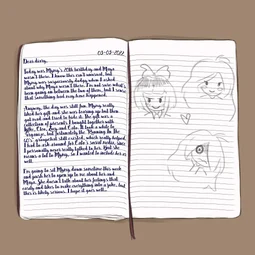 03-03-2022
Dear diary,
Today was Mying's 20th birthday and Maya
wasn't there. I know this isn't unusual, but
Mying was suspiciously dodgy when I asked
about why Maya wasn't there. I'm not sure what's
been going on between the two of them, but I sense
that something bad may have happened.
Anyway, the day was still fun. Mying really
liked her gift and she was tearing up but then
got mad and tried to hide it. The gift was a
collection of presents I bought together with
Cleo, Zoey and Cole. It took a while to
The Running In The
group chat still existed, which really helped.
I had to ask around for Cole's social media, since
I personally never really talked to her. But she
means a lot to Mying. So I wanted to include her as
well.
I'm going to sit Mying down sometime this week
and push her to open up to me about her and
Maya. She doesn't talk about her feelings that
easily and likes to make everything into a joke, but
this is likely serious. I hope it goes well..